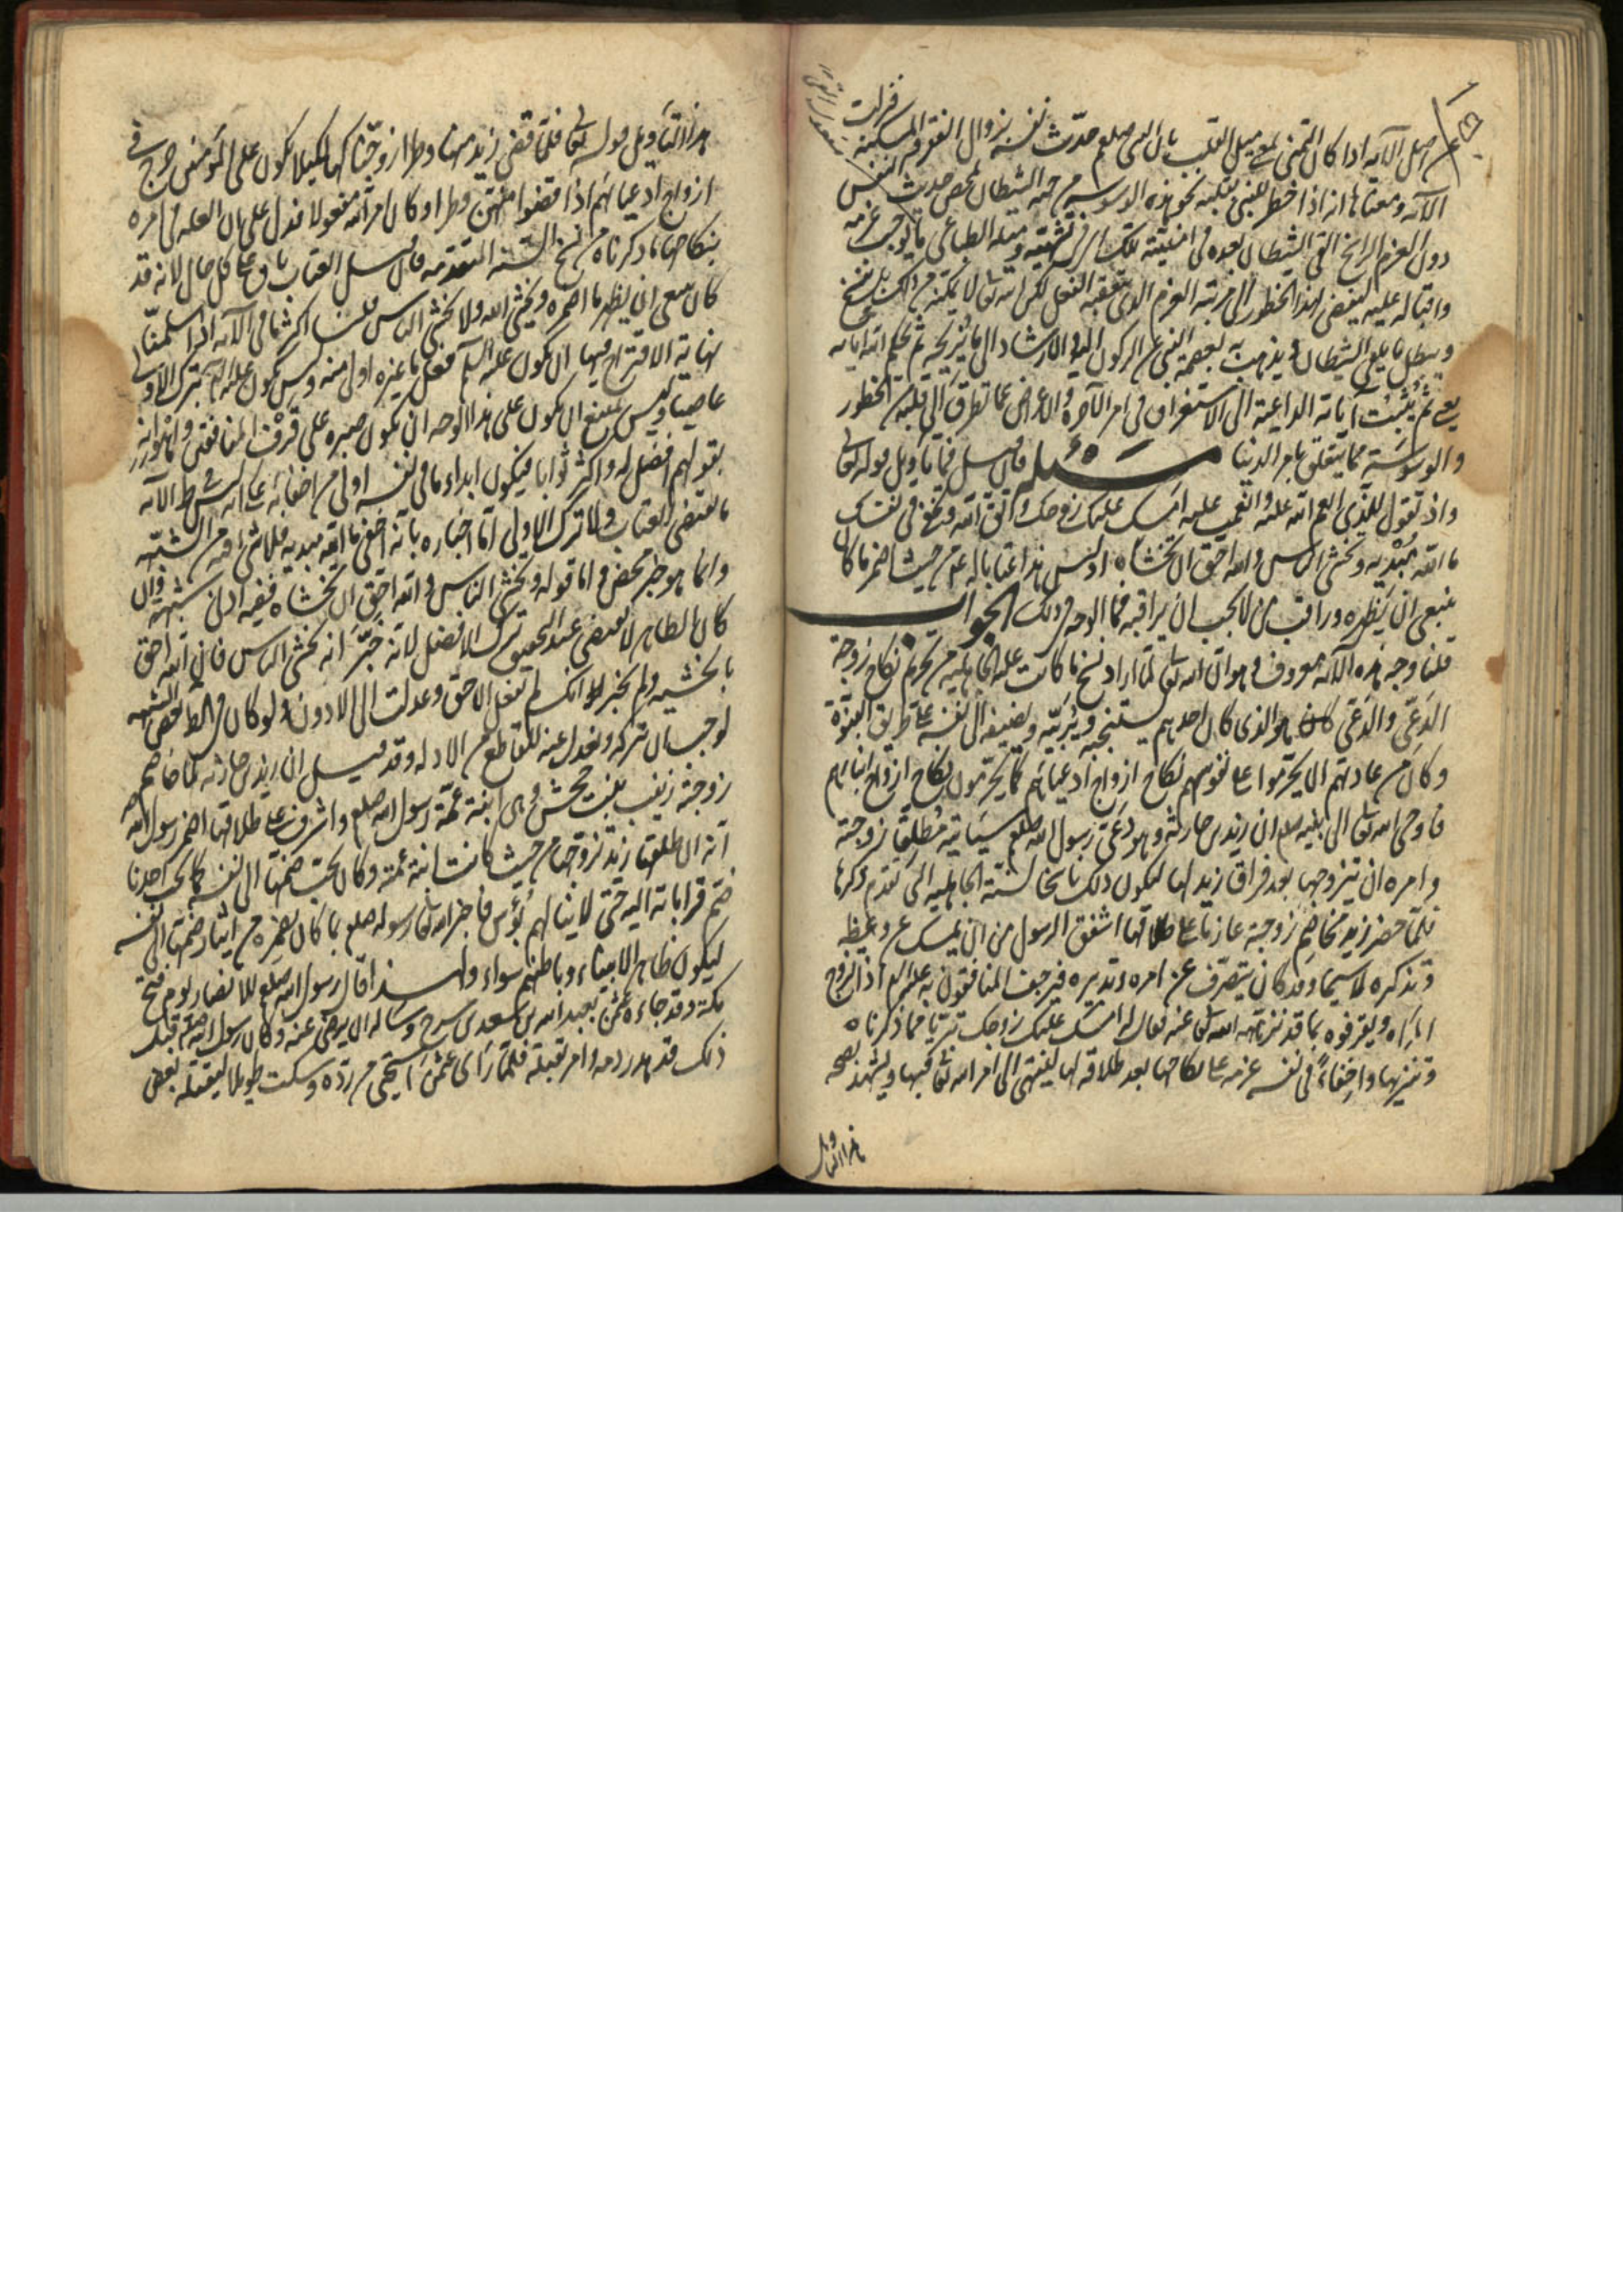 اصل الآية اذا كان التمنى لعو ميل القلب بان النبى صلعم حدّث نفسه بزوال الفقر والمسكنة فنزلت
الآية ومعناها انه اذا خطر للنبى بقلبه نحو هذه الوسوسة من جهة الشيطان لمحض حديث النفس
دون العزم الراسخ القى الشيطان بعده فى امنيّته تلك اى فى تشهّيه وميله الطباعى ما يوجب عزمه
واقباله عليه ليفضى لهذا الخطور الى مرتبة العزم الذى يتعقبه الفعل لكن الله تعالى لا يمكّنه من ذلك بل ينسخ
ويبطل ما يلقى الشيطان ويذهب به بعصمة النبى عن الركون اليه والارشاد الى ما يزيحه ثم يحكم الله آياته
يعنى ثم يثبت آياته الداعية الى الاستغراق فى امر الآخرة والاعراض عما تطرق الى قلبه من الخطور
والوسوسة مما يتعلق بامر الدنيا مسئلة فان قيل فما تأويل قوله تعالى
واذ تقول للذى انعم الله عليه وانعمت عليه امسك عليك زوجك واتق الله وتخفى فى نفسك
ما الله مبديه وتخشى الناس والله احق ان تخشاه او ليس هذا عتابا له عم من حيث اضمر ما كان
ينبغى ان يظهره وراقب من لا يجب ان يراقبه فما الوجه فى ذلك الجواب
قلنا وجه هذه الآية معروف وهو ان الله تعالى لما اراد نسخ ما كانت عليه الجاهلية من تحريم نكاح زوجة
الدعىّ والدعىّ هو الذى كان احدهم يستنجبه ويربّيه ويضيفه الى نفسه على طريق البنوّة
وكان من عادتهم ان يحرّموا على نفوسهم نكاح ازواج ادعيائهم كما يحرّمون نكاح ازواج ابنائهم
فاوحى الله تعالى الى نبيه صلعم ان زيد بن حارثة وهو دعىّ رسول الله صلعم سيأتيه مطلّقا زوجته
وامره ان يتزوجها بعد فراق زيد لها ليكون ذلك ناسخا لسنّة الجاهلية التى تقدم ذكرها
فلمّا حضر زيد مخاصم زوجته عازما على طلاقها اشفق الرسول من ان يمسك عن وعظه
وتذكيره لا سيما وقد كان يتصرّف على امره وتدبيره فيرجف المنافقون به عليه السلام اذا تزوج
المرأة ويقرفوه بما قد نزّهه الله تعالى عنه فقال له امسك عليك زوجك تبرّيا مما ذكرناه
وتنزّها واخفاءً فى نفسه عزمه على نكاحها بعد طلاقه لها لينتهى الى امر الله تعالى فيها ويشهد بصحة
هذا التأويل
هذا التأويل قوله تعالى فلمّا قضى زيد منها وطرا زوّجناكها لكيلا يكون على المؤمنين حرج فى
ازواج ادعيائهم اذا قضوا منهن وطرا وكان امر الله مفعولا فدل على ان العلة فى امره
بنكاحها ما ذكرناه من نسخ السنّة المتقدّمة فان قيل العتاب باق على كل حال لانه قد
كان ينبغى ان يظهر ما اضمره ويخشى الله ولا يخشى الناس قلنا اكثر ما فى الآية اذا سلّمنا
نهاية الاقتراح فيها ان يكون عليه السلام فعل ما غيره اولى منه وليس يكون عليه السلام بترك الاولى
عاصيا وليس يمتنع ان يكون على هذا الوجه ان يكون صبره على قرف المنافقين واهوانه
بقولهم افضل له واكثر ثوابا فيكون ابداء ما فى نفسه اولى من اخفائه على انه ليس فى ظاهر الآية
ما يقتضى العتاب ولا ترك الاولى امّا اخباره بانّه اخفى ما الله مبديه فلا شىء فيه من الشبهة
وانما هو خبر محض واما قوله وتخشى الناس والله احق ان تخشاه ففيه ادنى شبهة وان
كان الظاهر لا يقتضى عند التحقيق ترك الافضل لانه خبّر انه يخشى الناس فان الله احق
بالخشية ولم يخبر انك لم تفعل الاحق وعدلت الى الادون ولو كان فى الظاهر بعض الشبهة
لوجب ان نتركه ونعدل عنه للقاطع من الادلة وقد قيل ان زيد بن حارثة لما خاصم
زوجته زينب بنت جحش وهى ابنة عمّة رسول الله صلعم واشرف على طلاقها اضمر رسول الله صلعم
انّه ان طلّقها زيد تزوّجها من حيث كانت ابنة عمّته وكان يحبّ ضمّها الى نفسه كما يحب احدنا
ضمّ قراباته اليه حتى لا ينالهم بؤس فاخبر الله تعالى رسوله صلعم بما كان يضمره من ايثار ضمّها الى نفسه
ليكون ظاهر الانبياء وباطنهم سواء ولهذا قال رسول الله صلعم للانصار يوم فتح
مكة وقد جاءه عثمن بعبد الله بن سعد بن سرح وساله ان يرضى عنه وكان رسول الله صلعم قبل
ذلك قد هدر دمه وامر بقتله فلمّا رأى عثمن استحيى من ردّه وسكت طويلا ليقتله بعض